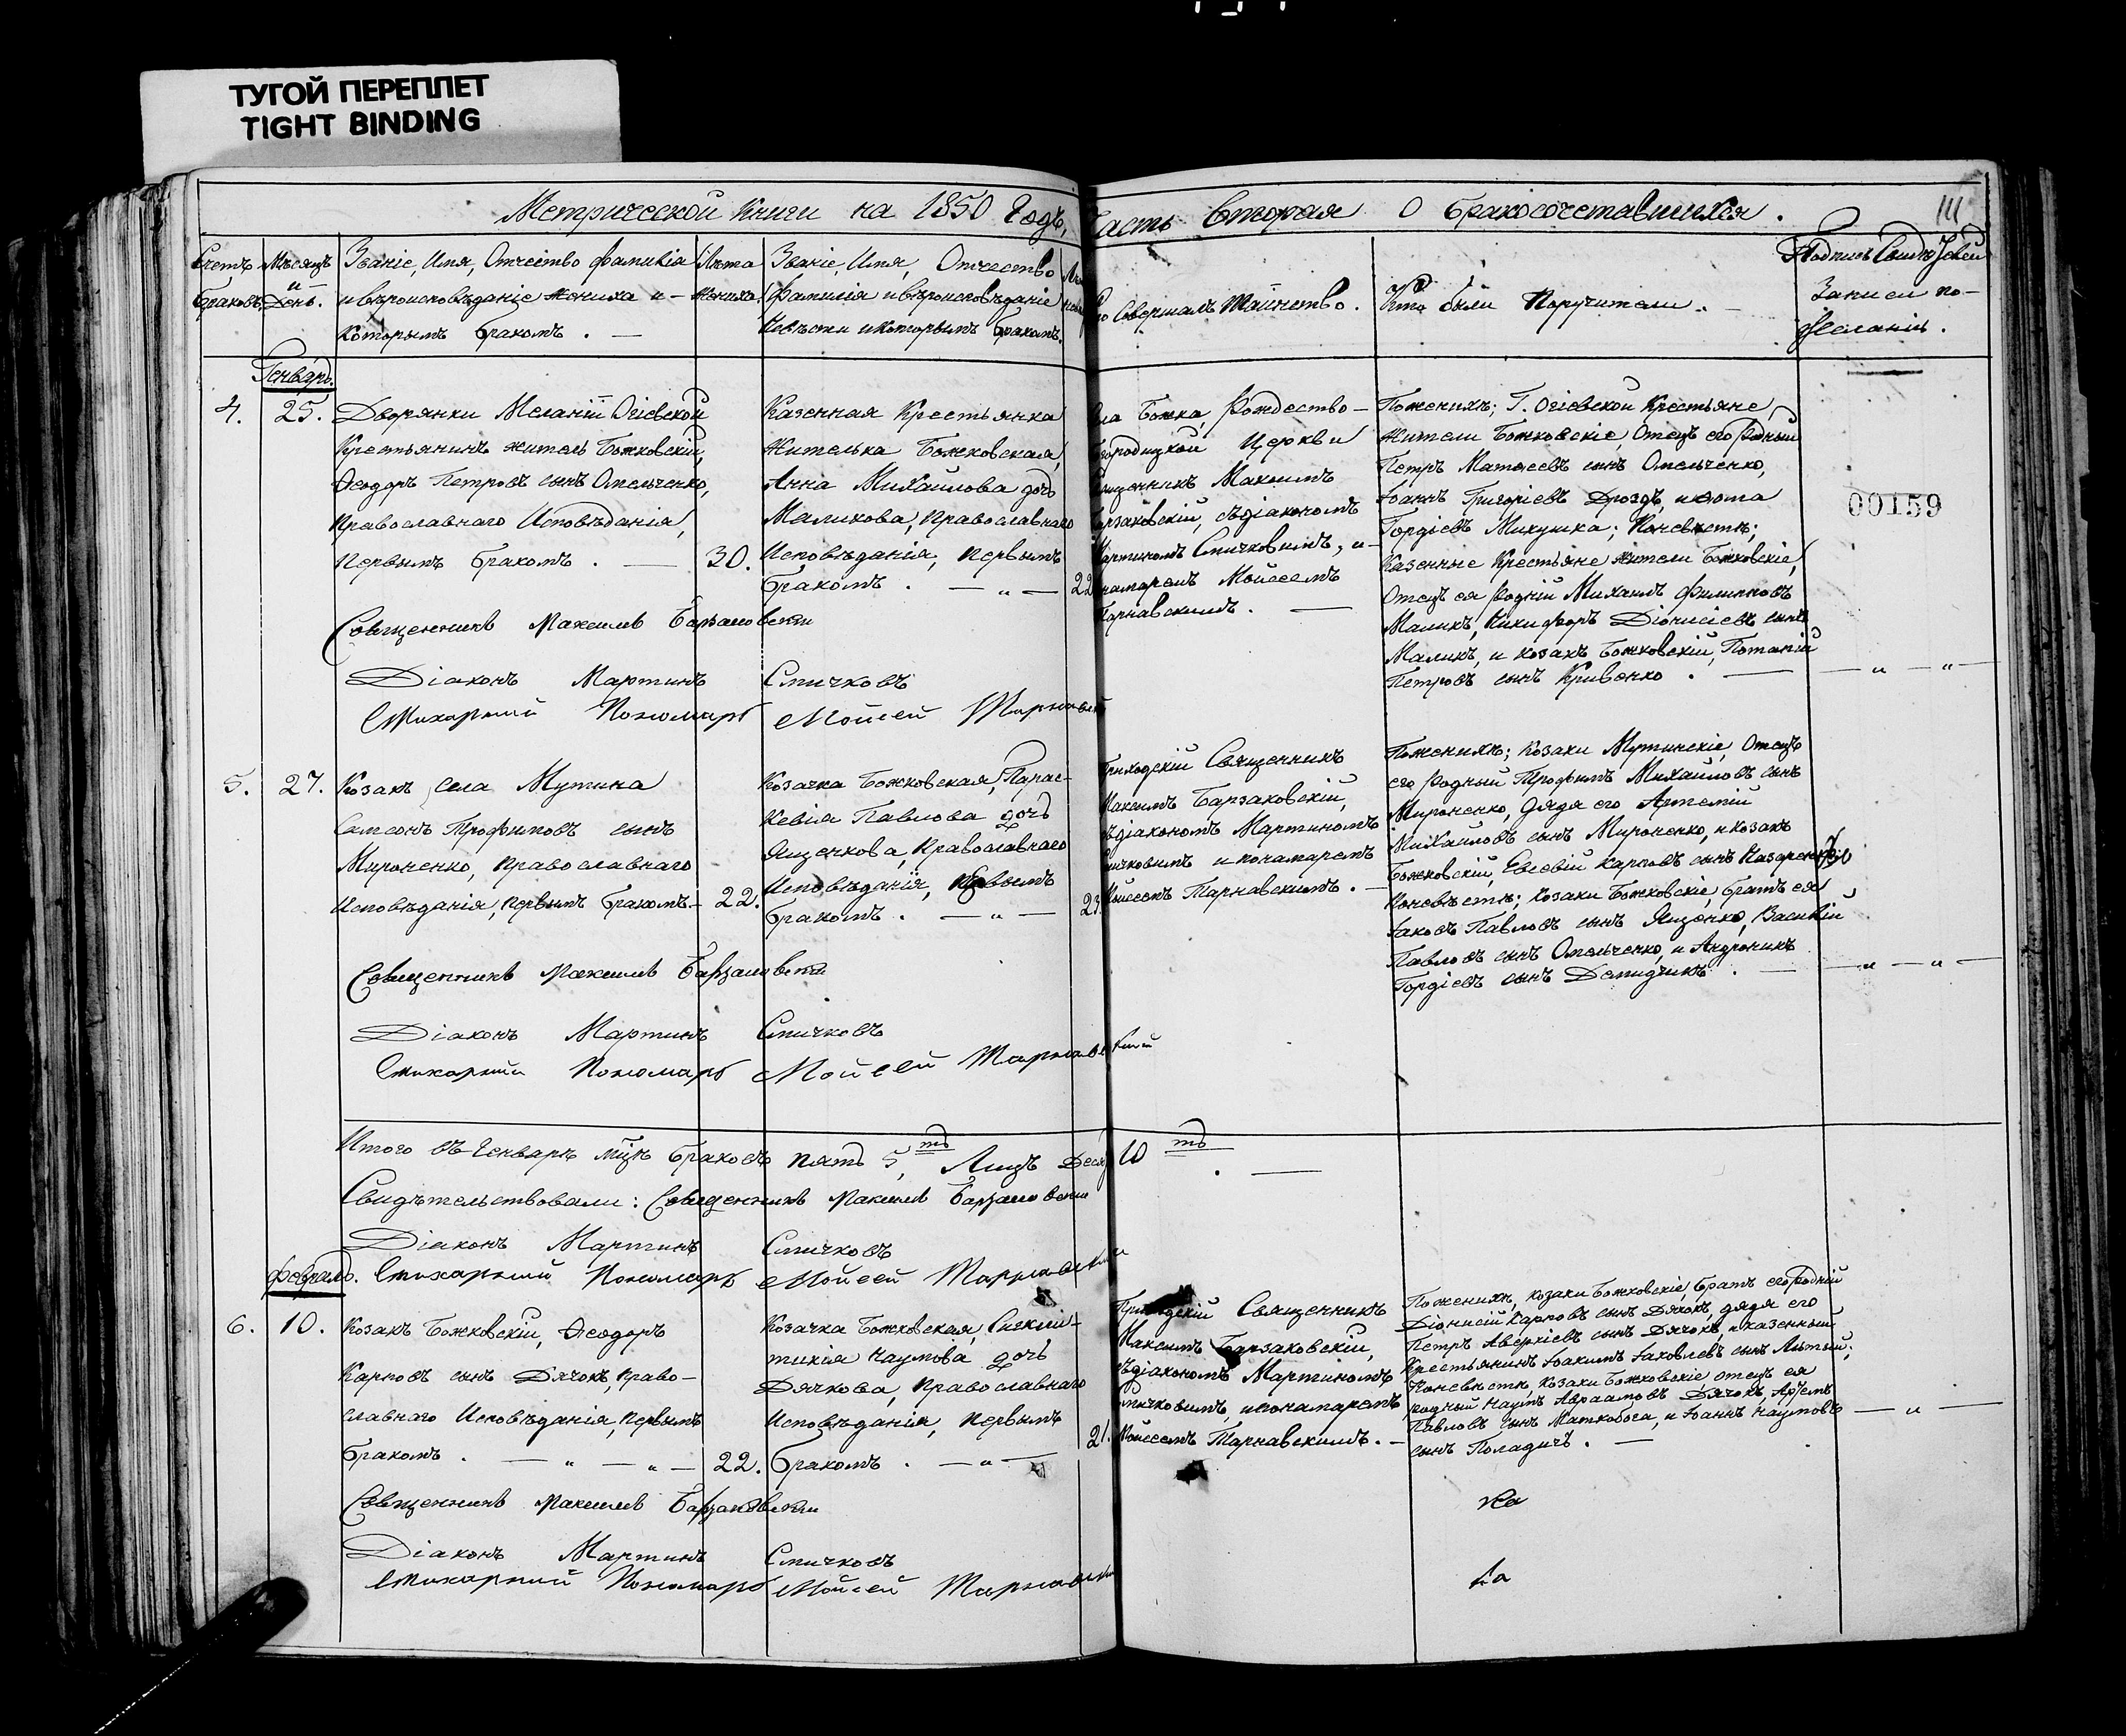 ТУГОЙ ПЕРЕПЛЕТ
TIGHT BINDING
Метрической Книги на 1850 Годъ, Часть Вторая О бракосочетавшихся.
111
Счетъ браковъ.
Мѣсяцъ и День.
Званіе, Имя, Отчество Фамилія
и вѣроисповѣданіе жениха и
Которымъ бракомъ.
Лѣта
жениха.
Званіе, Имя, Отчество
Фамилія и вѣроисповѣданіе
Невѣсты и Которымъ бракомъ.
Совершалъ Таинство.
Кто были Поручители.
Подпись Свидѣтелей
Записи по
желанію.
Генварь.
4.
25.
Дворянки Меланіи Огіевской
Крестьянинъ житель Божковскій,
Ѳеодоръ Петровъ сынъ Омельченко,
Православнаго Исповѣданія,
Первымъ бракомъ.
30.
Казенная Крестьянка
Жителька Божковская,
Анна Михайлова дочь
Маликова, Православнаго
Исповѣданія, Первымъ
бракомъ.
22
Села Божка, Рождество-
Богородицкой Церкви
Священникъ Максимъ
Барзаковскій, съ діакономъ
Мартиномъ Спичковымъ, и
понамаремъ Мойсеемъ
Тарнавскимъ.
По женихѣ; Г. Огіевской Крестьяне
жители Божковскіе, Отецъ его Родный
Петръ Матѳеевъ сынъ Омельченко,
Іоаннъ Григоріевъ Дроздъ, и
Гордіевъ Микушка; По невѣстѣ;
Казенные Крестьяне жители Божковскіе,
Отецъ ея Родній Михаилъ Филиповъ
Маликъ, Никифоръ Діонисіевъ сынъ
Маликъ, и козакъ Божковскій, Потапій
Петровъ сынъ Кривенко.
00159
Священникъ Максимъ Барзаковскій
Діаконъ Мартинъ Спичковъ
Стихарный Пономарь Мойсей Тарнавскій
5.
27.
Козакъ села Мутина
Самсонъ Трофимовъ сынъ
Мироненко, Православнаго
Исповѣданія, Первымъ бракомъ.
22.
Козачка Божковская, Парас-
кевія Павлова дочь
Ященкова, Православнаго
Исповѣданія, Первымъ
бракомъ.
23.
Приходскій Священникъ
Максимъ Барзаковскій,
съ діакономъ Мартиномъ
Спичковымъ и понамаремъ
Мойсеемъ Тарнавскимъ.
По женихѣ; Козаки Мутинскіе, Отецъ
его Родный Трофимъ Михайловъ сынъ
Мироненко, Дядя его Артемій
Михайловъ сынъ Мироненко, и козакъ
Божковскій, Евсевій Карповъ сынъ Назаренко
По невѣстѣ; Козаки Божковскіе, братъ ея
Іаковъ Павловъ сынъ Ященко, Василій
Павловъ сынъ Омельченко, и Андроникъ
Гордіевъ сынъ Демидчикъ.
Священникъ Максимъ Барзаковскій
Діаконъ Мартинъ Спичковъ
Стихарный Пономарь Мойсей Тарнавскій
Итого въ Генварѣ мцѣ браковъ пять 5,ть Лицъ Деся 10ть
Свидѣтельствовали: Священникъ Максимъ Барзаковскій
Діаконъ Мартинъ Спичковъ
Стихарный Пономарь Мойсей Тарнавскій
Февраль.
6.
10.
Козакъ Божковскій, Ѳеодоръ
Карповъ сынъ Дячокъ, Право-
славнаго Исповѣданія, Первымъ
бракомъ.
22.
Козачка Божковская, Синкли-
тикія Наумова дочь
Дячкова, Православнаго
Исповѣданія, Первымъ
бракомъ.
21.
Приходскій Священникъ
Максимъ Барзаковскій,
съ діакономъ Мартиномъ
Спичковымъ, и понамаремъ
Мойсеемъ Тарнавскимъ.
По женихѣ, козаки Божковскіе, братъ его Родній
Діонисій Карповъ сынъ Дячокъ, дядя его
Петръ Аверкіевъ сынъ Дячокъ, и казенный
Крестьянинъ Іоакимъ Іаковлевъ сынъ
По невѣстѣ, козаки Божковскіе, отецъ ея
родный Наумъ Авраамовъ Дячокъ, Артемъ
Павловъ сынъ Маткобога, и Іоаннъ Наумовъ
сынъ Поладичъ.
Священникъ Максимъ Барзаковскій
Діаконъ Мартинъ Спичковъ
Стихарный Пономарь Мойсей Тарнавскій